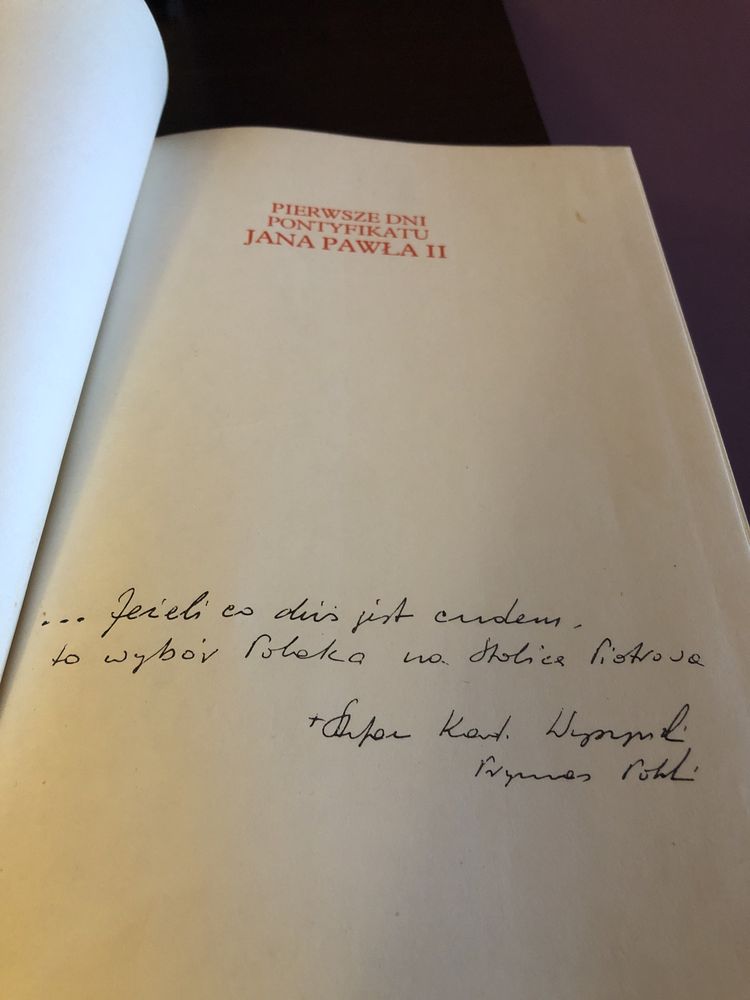 PIERWSZE DNI
PONTYFIKATU
JANA PAWŁA II
... Jeżeli co dziś jest cudem,
to wybór Polaka na Stolicę Piotrową
+ Stefan Kard. Wyszyński
Prymas Polski